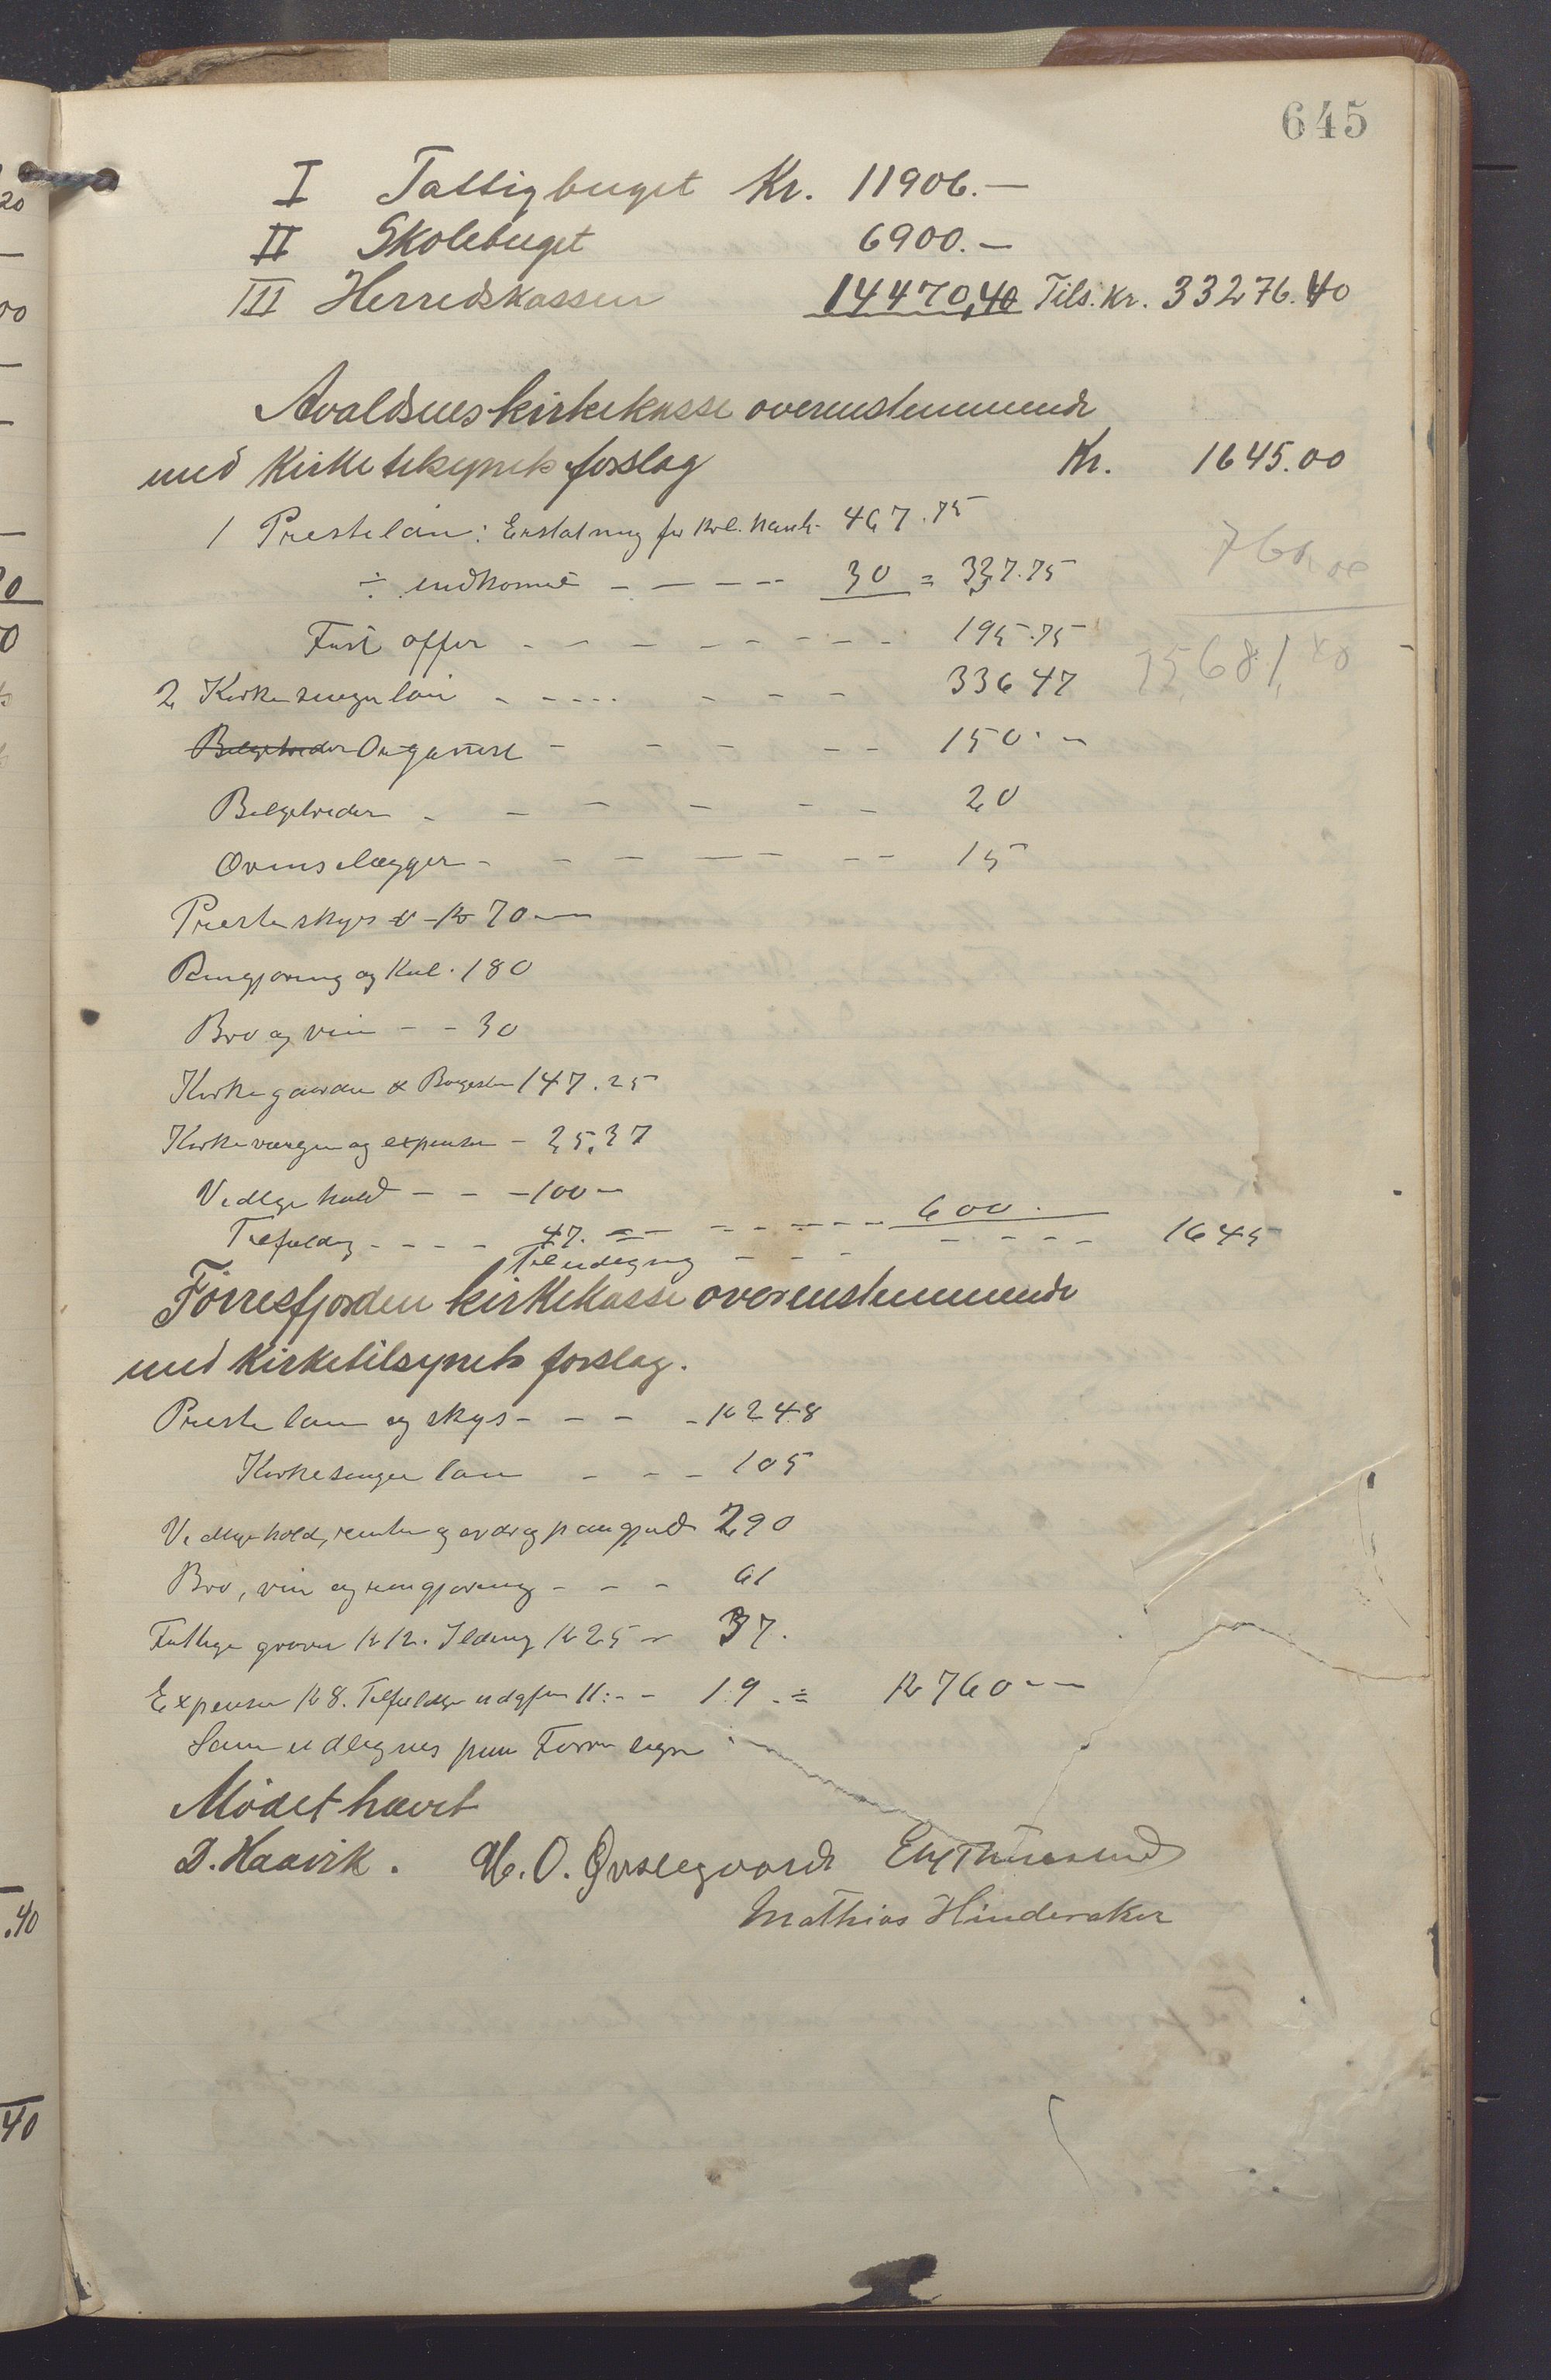 645
I Fattigbuget Kr. 11906.—
II Skolebuget 6900.—
III Herredskassen 14470,40 Tils. Kr. 33276.40
Avaldsnes kirkekasse overenstemmende
med Kirketilsynets forslag Kr. 1645.00
1 Presteløn: Erstatning for 467.75
÷ indkomne - - - - 30 = 337.75
Fast offer - - - - - - - 195.75
2 Kirkesangerløn - - - - - - - 336 47
Belgetreder Organist - - - - - 150.-
Belgetreder - - - - - - 20
Ovnslægger - - - - - - - 15
Presteskyds - Kr 70 —
Rengjøring og Kul. 180
Brø og vin - - 30
Kirkegaarden 147.25
Kirkevergen og expenser - 25,37
Vedlgehold - - - 100 -
Tilfeldig - - - - 47. = - - - - - - 600.
Til udligning - - - - - - - 1645
Førresfjorden kirkekasse overenstemmende
med Kirketilsynets forslag.
Presteløn og skys - - - - Kr 248
Kirkesangerløn - - - 105
Vedlgehold, renter og avdrag 290
Brø, vin og rengjøring - - - 61
Fattige graver Kr 12. Ilding Kr 25 - 37.
Expenser Kr 8. Tilfeldige udgifter 11:- - 19. = Kr 760 - -
Som udlignes paa Førre sogn
Mødet hævet
D. Haavik. H. O. Ørsegaard
Mathias Hinderaker
760.00
35,681,40